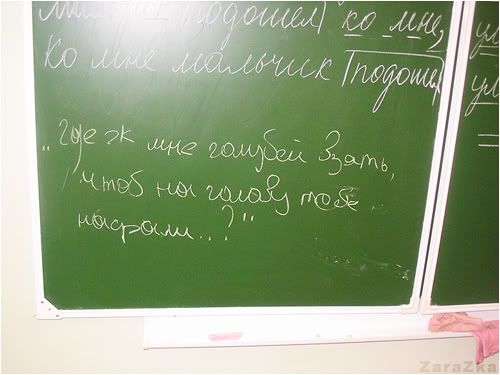 мальчик подошел ко мне,
Ко мне мальчик подошел
ул
ул
„Где ж мне голубей взять,
чтоб на голову тебе
насрали...?"
ZaraZka